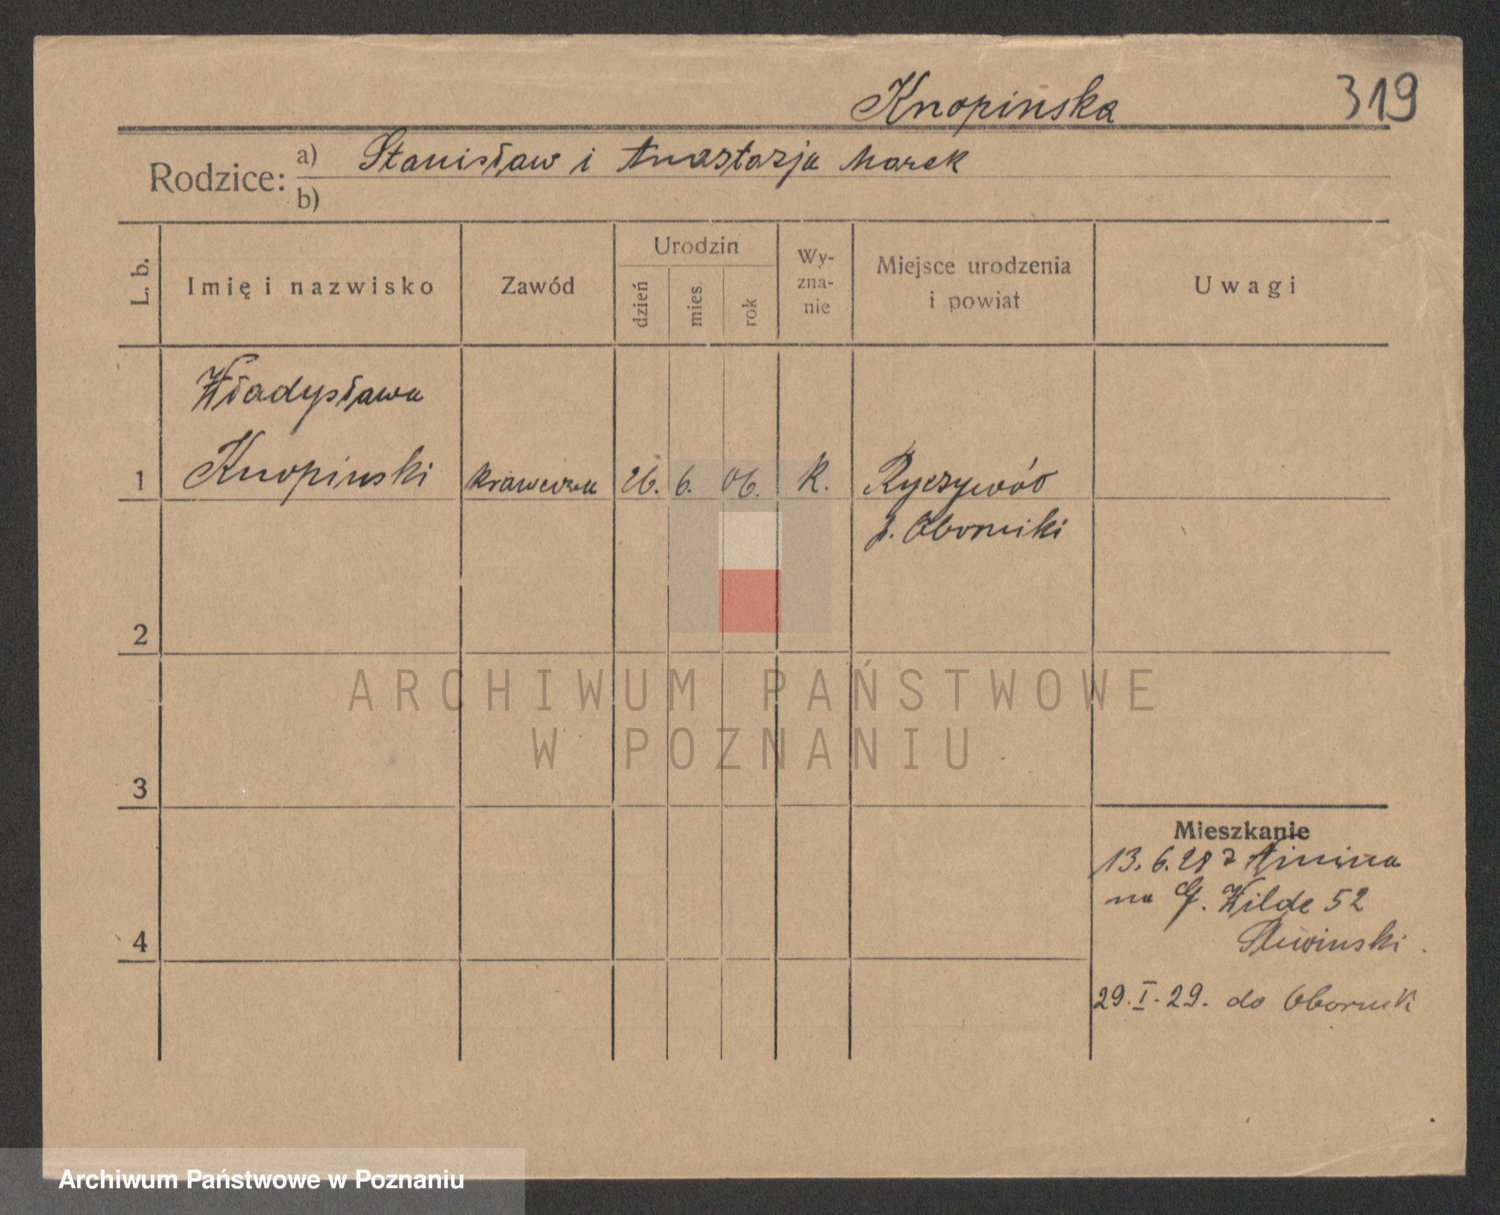 Knopinska
319
Rodzice: a) Stanisław i Anastazja Marek
b)
L. b.
Imię i nazwisko
Zawód
Urodzin
dzień
mies.
rok
Wy-
zna-
nie
Miejsce urodzenia
i powiat
Uwagi
Władysława
1 Knopinski krawcowa 26. 6. 06. K. Ryczywół
p. Oborniki
2
3
4
Mieszkanie
13. 6. 28 z
na G. Wilde 52
Sliwinski.
29. I. 29. do Obornik
ARCHIWUM PAŃSTWOWE
W POZNANIU
Archiwum Państwowe w Poznaniu